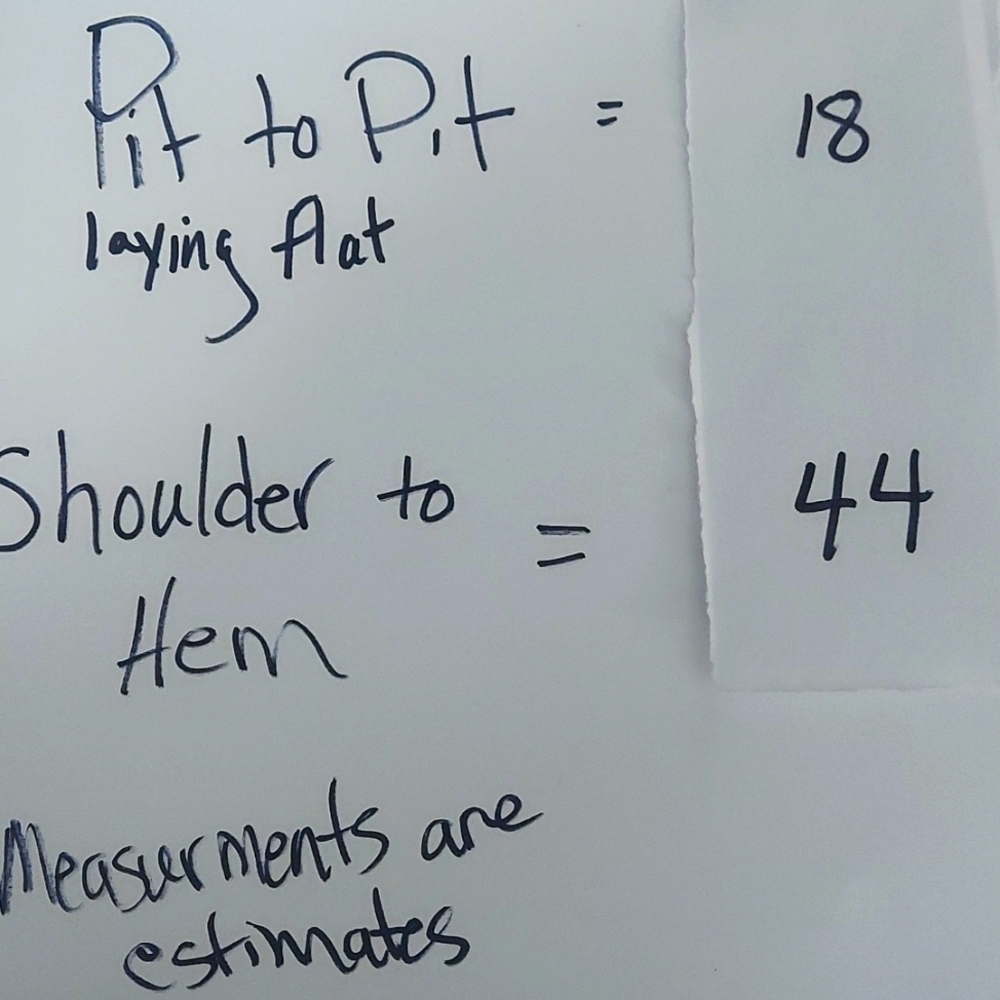 Pit to Pit = 18
laying flat
Shoulder to = 44
Hem
Measurments are
estimates